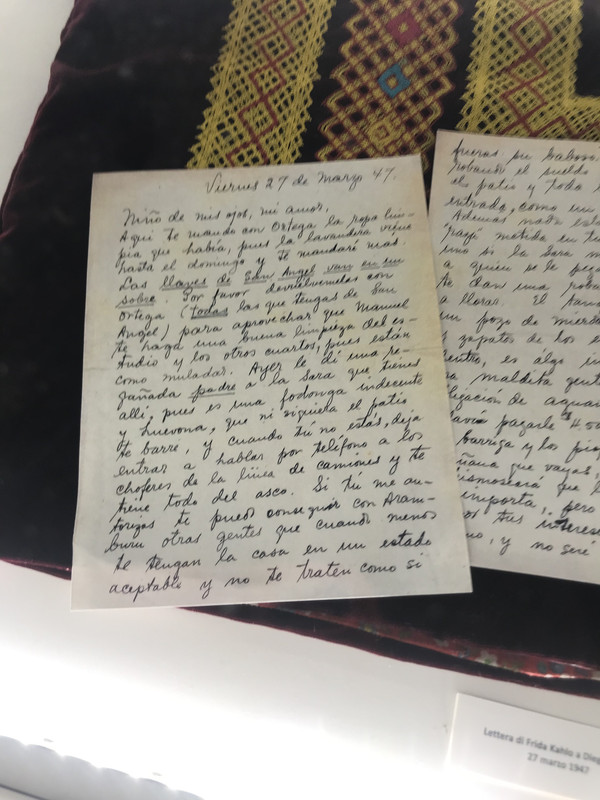 Viernes 27 de Marzo 47.
Niño de mis ojos, mi amor,
Aquí te mando con Ortega la ropa lim-
pia que había, pues la lavandera viene
hasta el domingo y te mandaré mas.
Las llaves de San Angel van en un
sobre. Por favor devuélvemelas con
Ortega (todas las que tengas de San
Angel) para aprovechar que Manuel
te haga una buena limpieza del es-
tudio y los otros cuartos, pues están
como muladar. Ayer le dí una re-
gañada padre a la Sara que tienes
allí, pues es una fodonga indecente
y huevona, que ni siquiera el patio
te barre, y cuando tú no estás, deja
entrar a hablar por teléfono a los
choferes de la línea de camiones y te
tiene todo del asco. Si tú me au-
torizas te puedo conseguir con Aram-
buru otras gentes que cuando menos
te tengan la casa en un estado
aceptable y no te traten como si
fueras su baboso
robando el sueldo
el patio y toda
entrada, como un
Ademas nada esta
metida en tu
uno si la Sara
a quien se le
te dan una
a llorar. El
un pozo de mierda
y zapatos de los
entro, es algo
maldita gente
pagarle $4.00
barriga y los
que vayas,
que l
importa, pero
tres
, y no seré
Lettera di Frida Kahlo a Dieg
27 marzo 1947